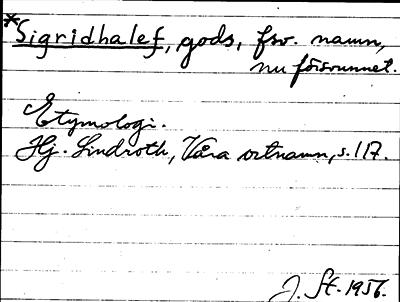 *Sigridhalef, gods, fsv. namn,
nu försvunnet.
Etymologi.
Hj. Lindroth, Våra ortnamn, s. 117.
J. St. 1956.